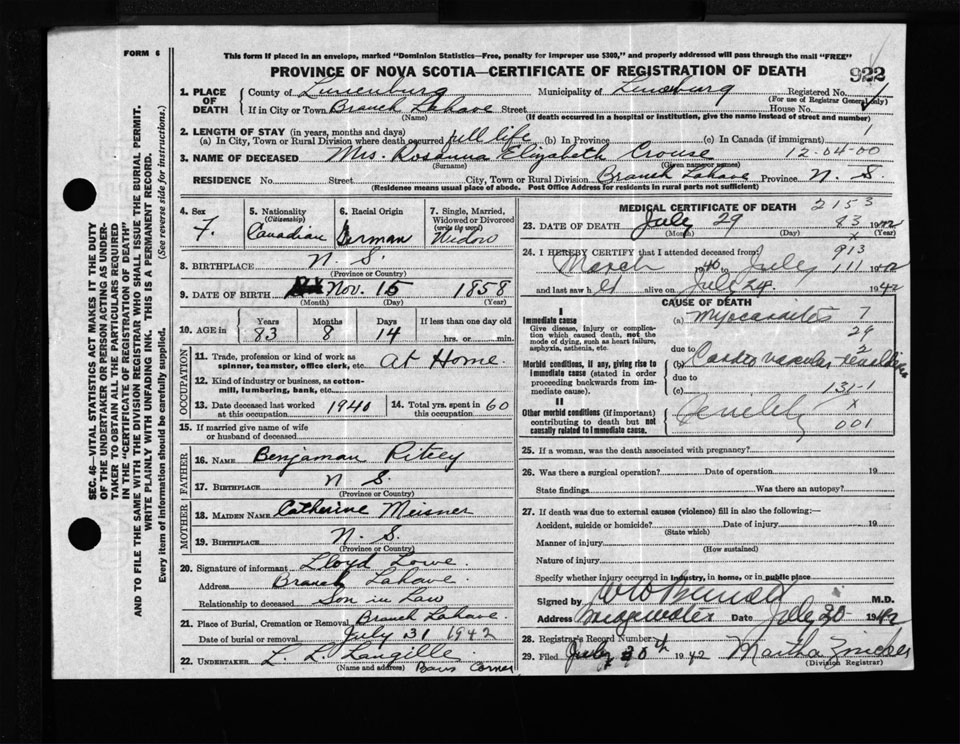 FORM 6
This form if placed in an envelope, marked "Dominion Statistics—Free, penalty for improper use $300," and properly addressed will pass through the mail "FREE"
PROVINCE OF NOVA SCOTIA—CERTIFICATE OF REGISTRATION OF DEATH
922
1. PLACE OF DEATH
County of Lunenburg Municipality of Lunenburg Registered No.
(For use of Registrar General only)
If in City or Town Branch Lahave Street House No.
(Name) (If death occurred in a hospital or institution, give the name instead of street and number)
2. LENGTH OF STAY (in years, months and days)
(a) In City, Town or Rural Division where death occurred full life (b) In Province (c) In Canada (if immigrant) 1
3. NAME OF DECEASED Mrs. Elizabeth Crouse 12-04-00
(Surname) (Given name or names)
RESIDENCE No. Street City, Town or Rural Division Branch Lahave Province N. S.
(Residence means usual place of abode. Post Office Address for residents in rural parts not sufficient)
4. Sex F.
5. Nationality (Citizenship) Canadian
6. Racial Origin German
7. Single, Married, Widowed or Divorced (write the word) Widow
8. BIRTHPLACE N. S.
(Province or Country)
9. DATE OF BIRTH Nov. 15 1858
(Month) (Day) (Year)
10. AGE in Years 83 Months 8 Days 14 If less than one day old hrs. or min.
OCCUPATION
11. Trade, profession or kind of work as spinner, teamster, office clerk, etc. At Home.
12. Kind of industry or business, as cotton-mill, lumbering, bank, etc.
13. Date deceased last worked at this occupation 1940
14. Total yrs. spent in this occupation 60
15. If married give name of wife or husband of deceased
FATHER
16. NAME Benjaman Ritcey
17. BIRTHPLACE N S.
(Province or Country)
MOTHER
18. MAIDEN NAME Catherine Meisner
19. BIRTHPLACE N. S.
(Province or Country)
20. Signature of informant Lloyd Lowe.
Address Branch Lahave.
Relationship to deceased Son in Law
21. Place of Burial, Cremation or Removal Branch Lahave.
Date of burial or removal July 31 1942
22. UNDERTAKER L. L Langille.
(Name and address) Corner
MEDICAL CERTIFICATE OF DEATH 2153
23. DATE OF DEATH July 29 83 1942
(Month) (Day) (Year)
24. I HEREBY CERTIFY that I attended deceased from 913
March 1940 to July 111 1942
and last saw h alive on July 24 1942
CAUSE OF DEATH
I
Immediate cause
Give disease, injury or complication which caused death, not the mode of dying, such as heart failure, asphyxia, asthenia, etc.
(a) Myocarditis 7
29
due to 2
Morbid conditions, if any, giving rise to immediate cause (stated in order proceeding backwards from immediate cause).
(b) Cardio vascular
due to
(c) 131-1
II
Other morbid conditions (if important) contributing to death but not causally related to immediate cause.
Senility x
001
25. If a woman, was the death associated with pregnancy?
26. Was there a surgical operation? Date of operation 19
State findings Was there an autopsy?
27. If death was due to external causes (violence) fill in also the following:—
Accident, suicide or homicide? Date of injury 19
(State which)
Manner of injury
(How sustained)
Nature of injury
Specify whether injury occurred in industry, in home, or in public place
Signed by M.D.
Address Bridgewater Date July 30 1942
28. Registrar's Record Number
29. Filed July 30th 1942 Martha Zinck
(Division Registrar)
SEC. 46—VITAL STATISTICS ACT MAKES IT THE DUTY
OF THE UNDERTAKER OR PERSON ACTING AS UNDER-
TAKER TO OBTAIN ALL THE PARTICULARS REQUIRED
IN THE "CERTIFICATE OF REGISTRATION OF DEATH"
AND TO FILE THE SAME WITH THE DIVISION REGISTRAR WHO SHALL ISSUE THE BURIAL PERMIT.
WRITE PLAINLY WITH UNFADING INK. THIS IS A PERMANENT RECORD.
Every item of information should be carefully supplied. (See reverse side for instructions.)